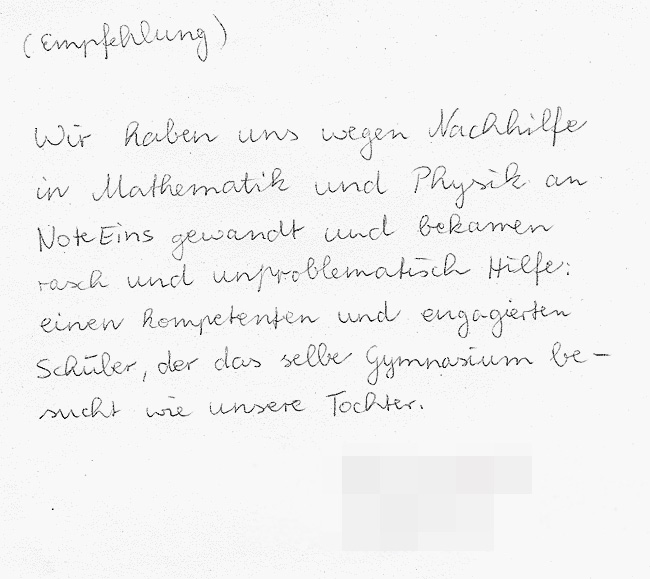 (Empfehlung)
Wir haben uns wegen Nachhilfe
in Mathematik und Physik an
NoteEins gewandt und bekamen
rasch und unproblematisch Hilfe:
einen kompetenten und engagierten
Schüler, der das selbe Gymnasium be-
sucht wie unsere Tochter.